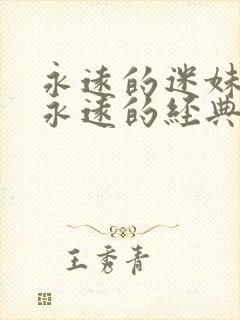 永远的迷妹
永远的經典
王秀青